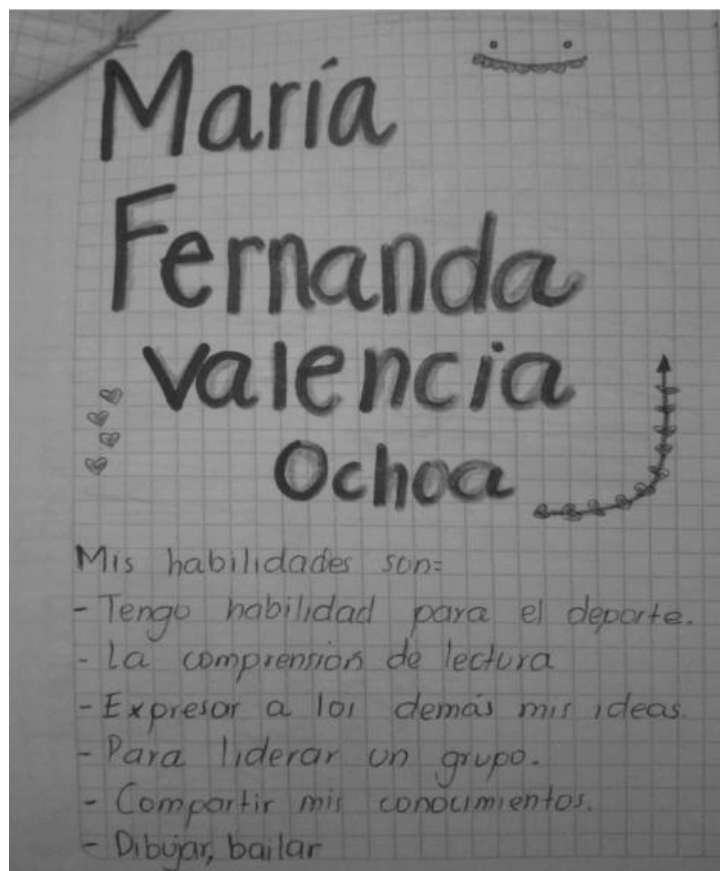 María
Fernanda
Valencia
Ochoa
Mis habilidades son:
- Tengo habilidad para el deporte.
- La comprensión de lectura
- Expresar a los demás mis ideas.
- Para liderar un grupo.
- Compartir mis conocimientos.
- Dibujar, bailar